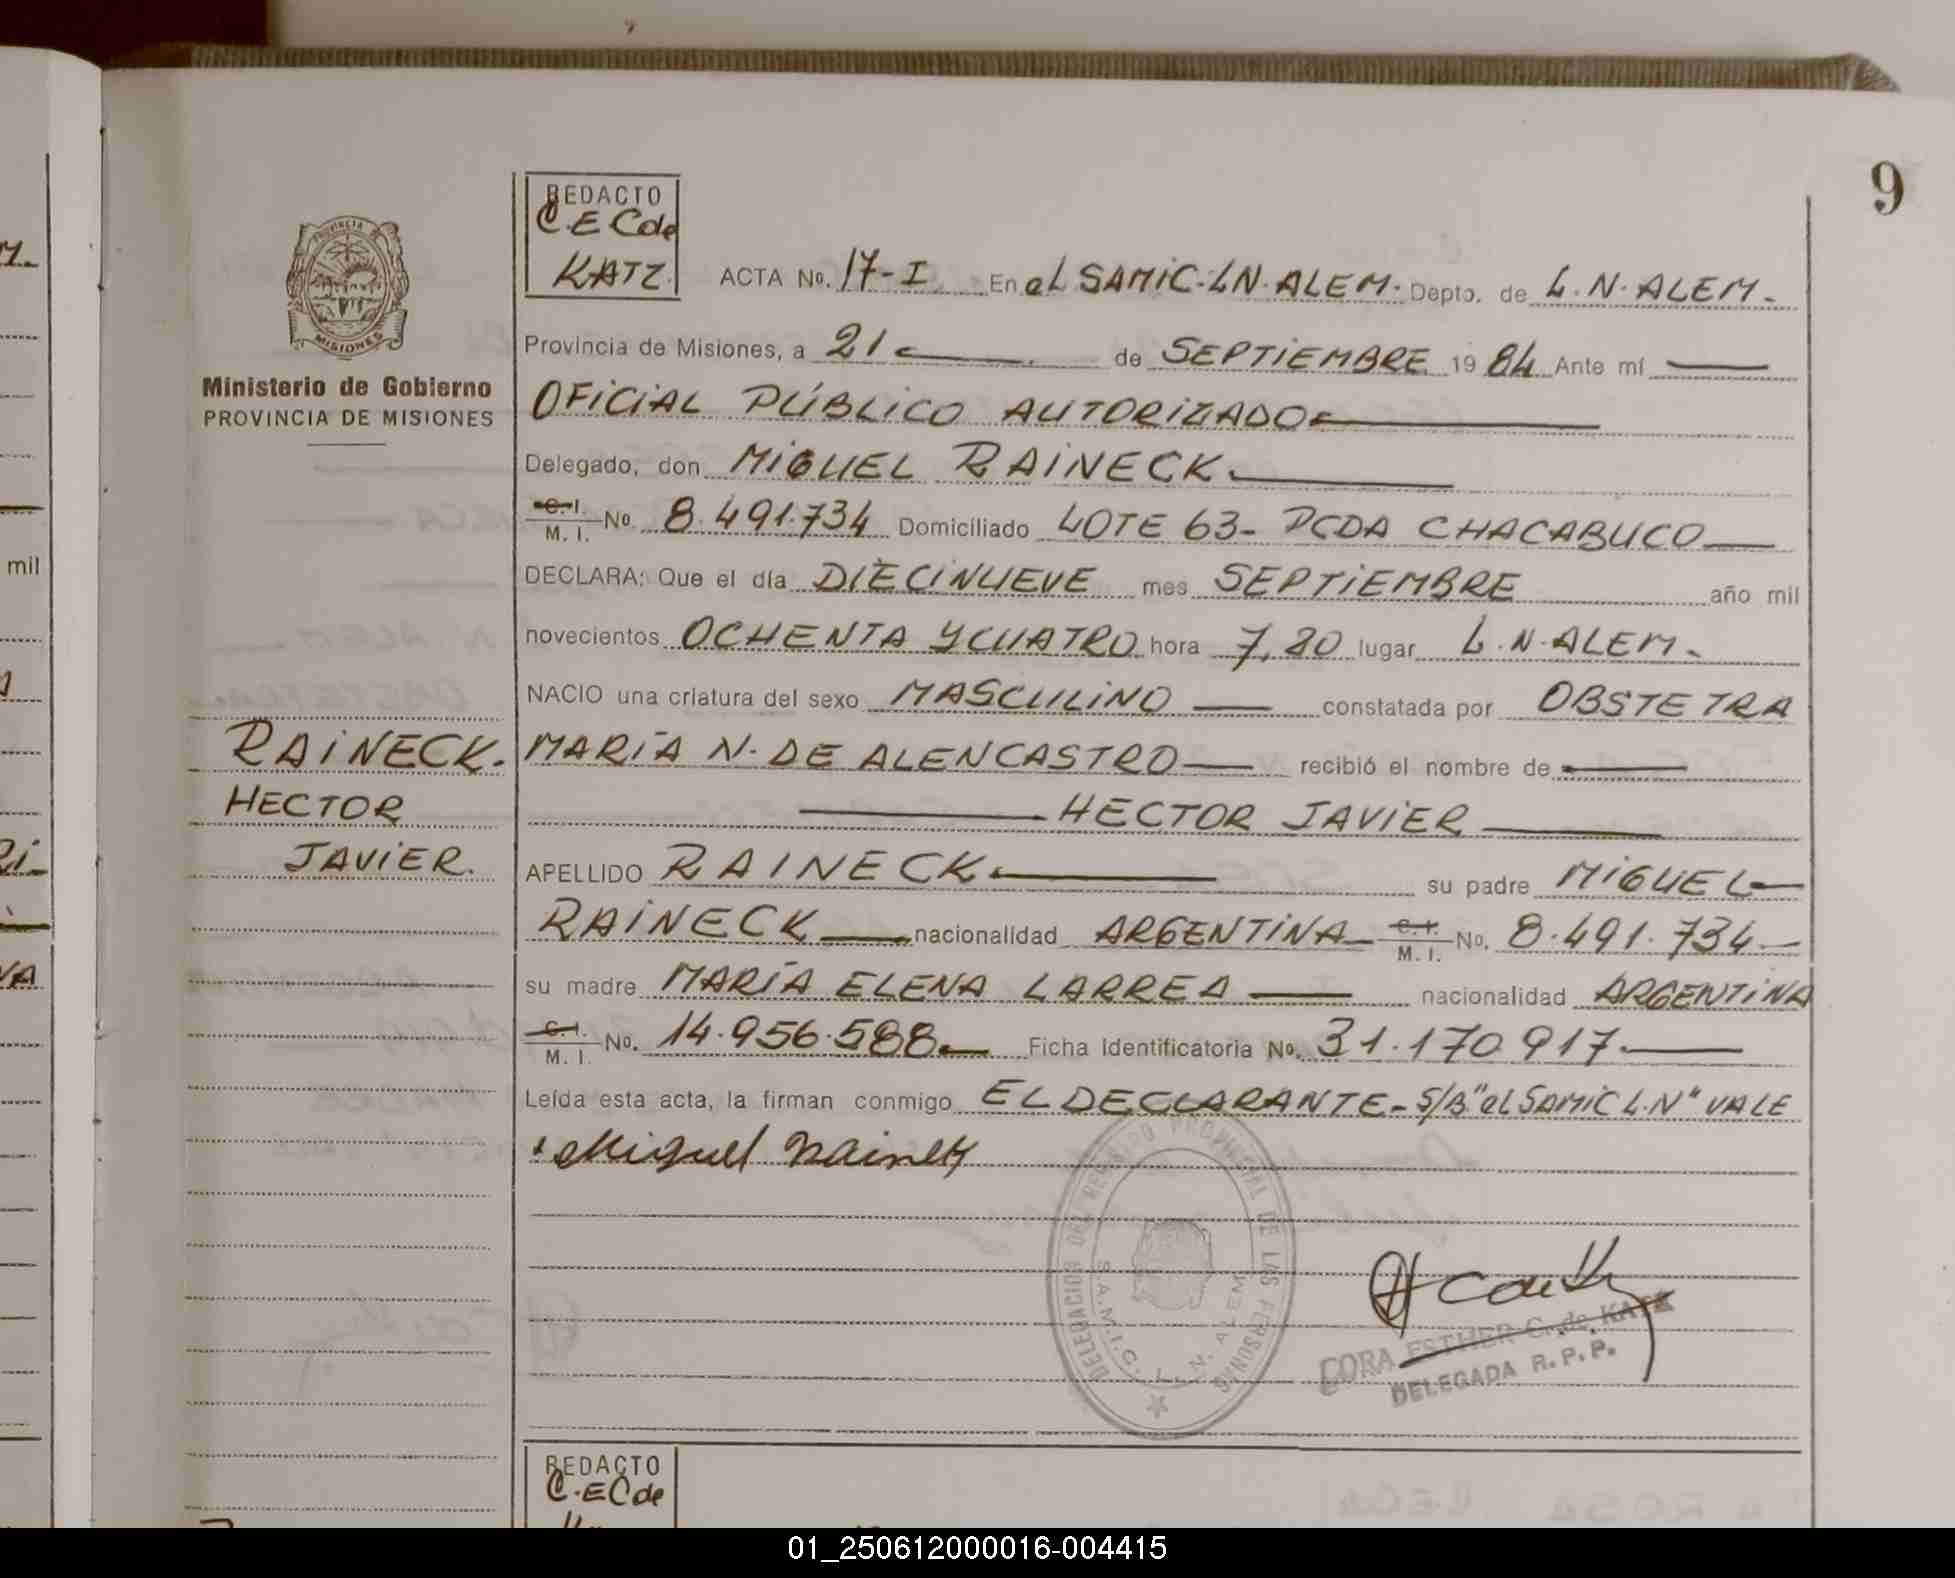 9
REDACTO
C.E Cde
KATZ.
PROVINCIA DE
MISIONES
Ministerio de Gobierno
PROVINCIA DE MISIONES
ACTA No. 17-I En eL SAMIC-LN. ALEM. Depto. de L.N. ALEM.
Provincia de Misiones, a 21 de SEPTIEMBRE 1984 Ante mí
OFICIAL PÚBLICO AUTORIZADO
Delegado, don MIGUEL RAINECK
C. I.
M. I. No. 8.491.734 Domiciliado LOTE 63- PCDA CHACABUCO
DECLARA: Que el día DIECINUEVE mes SEPTIEMBRE año mil
novecientos OCHENTA Y CUATRO hora 7,20 lugar L.N. ALEM.
NACIO una criatura del sexo MASCULINO constatada por OBSTETRA
MARÍA N. DE ALENCASTRO recibió el nombre de
HECTOR JAVIER
APELLIDO RAINECK su padre MIGUEL
RAINECK nacionalidad ARGENTINA C. I.
M. I. No. 8.491.734
su madre MARÍA ELENA LARREA nacionalidad ARGENTINA
C. I.
M. I. No. 14.956.588 Ficha Identificatoria No. 31.170.917.
Leída esta acta, la firman conmigo EL DECLARANTE- S/B "eL SAMIC L.N" VALE
Miguel Raineck
RAINECK.
HECTOR
JAVIER.
DELEGACION DEL REGISTRO PROVINCIAL DE LAS PERSONAS
S.A.M.I.C. L. N. ALEM
CORA ESTHER C. de KATZ
DELEGADA R.P.P.
REDACTO
C.E Cde
mil
01_250612000016-004415